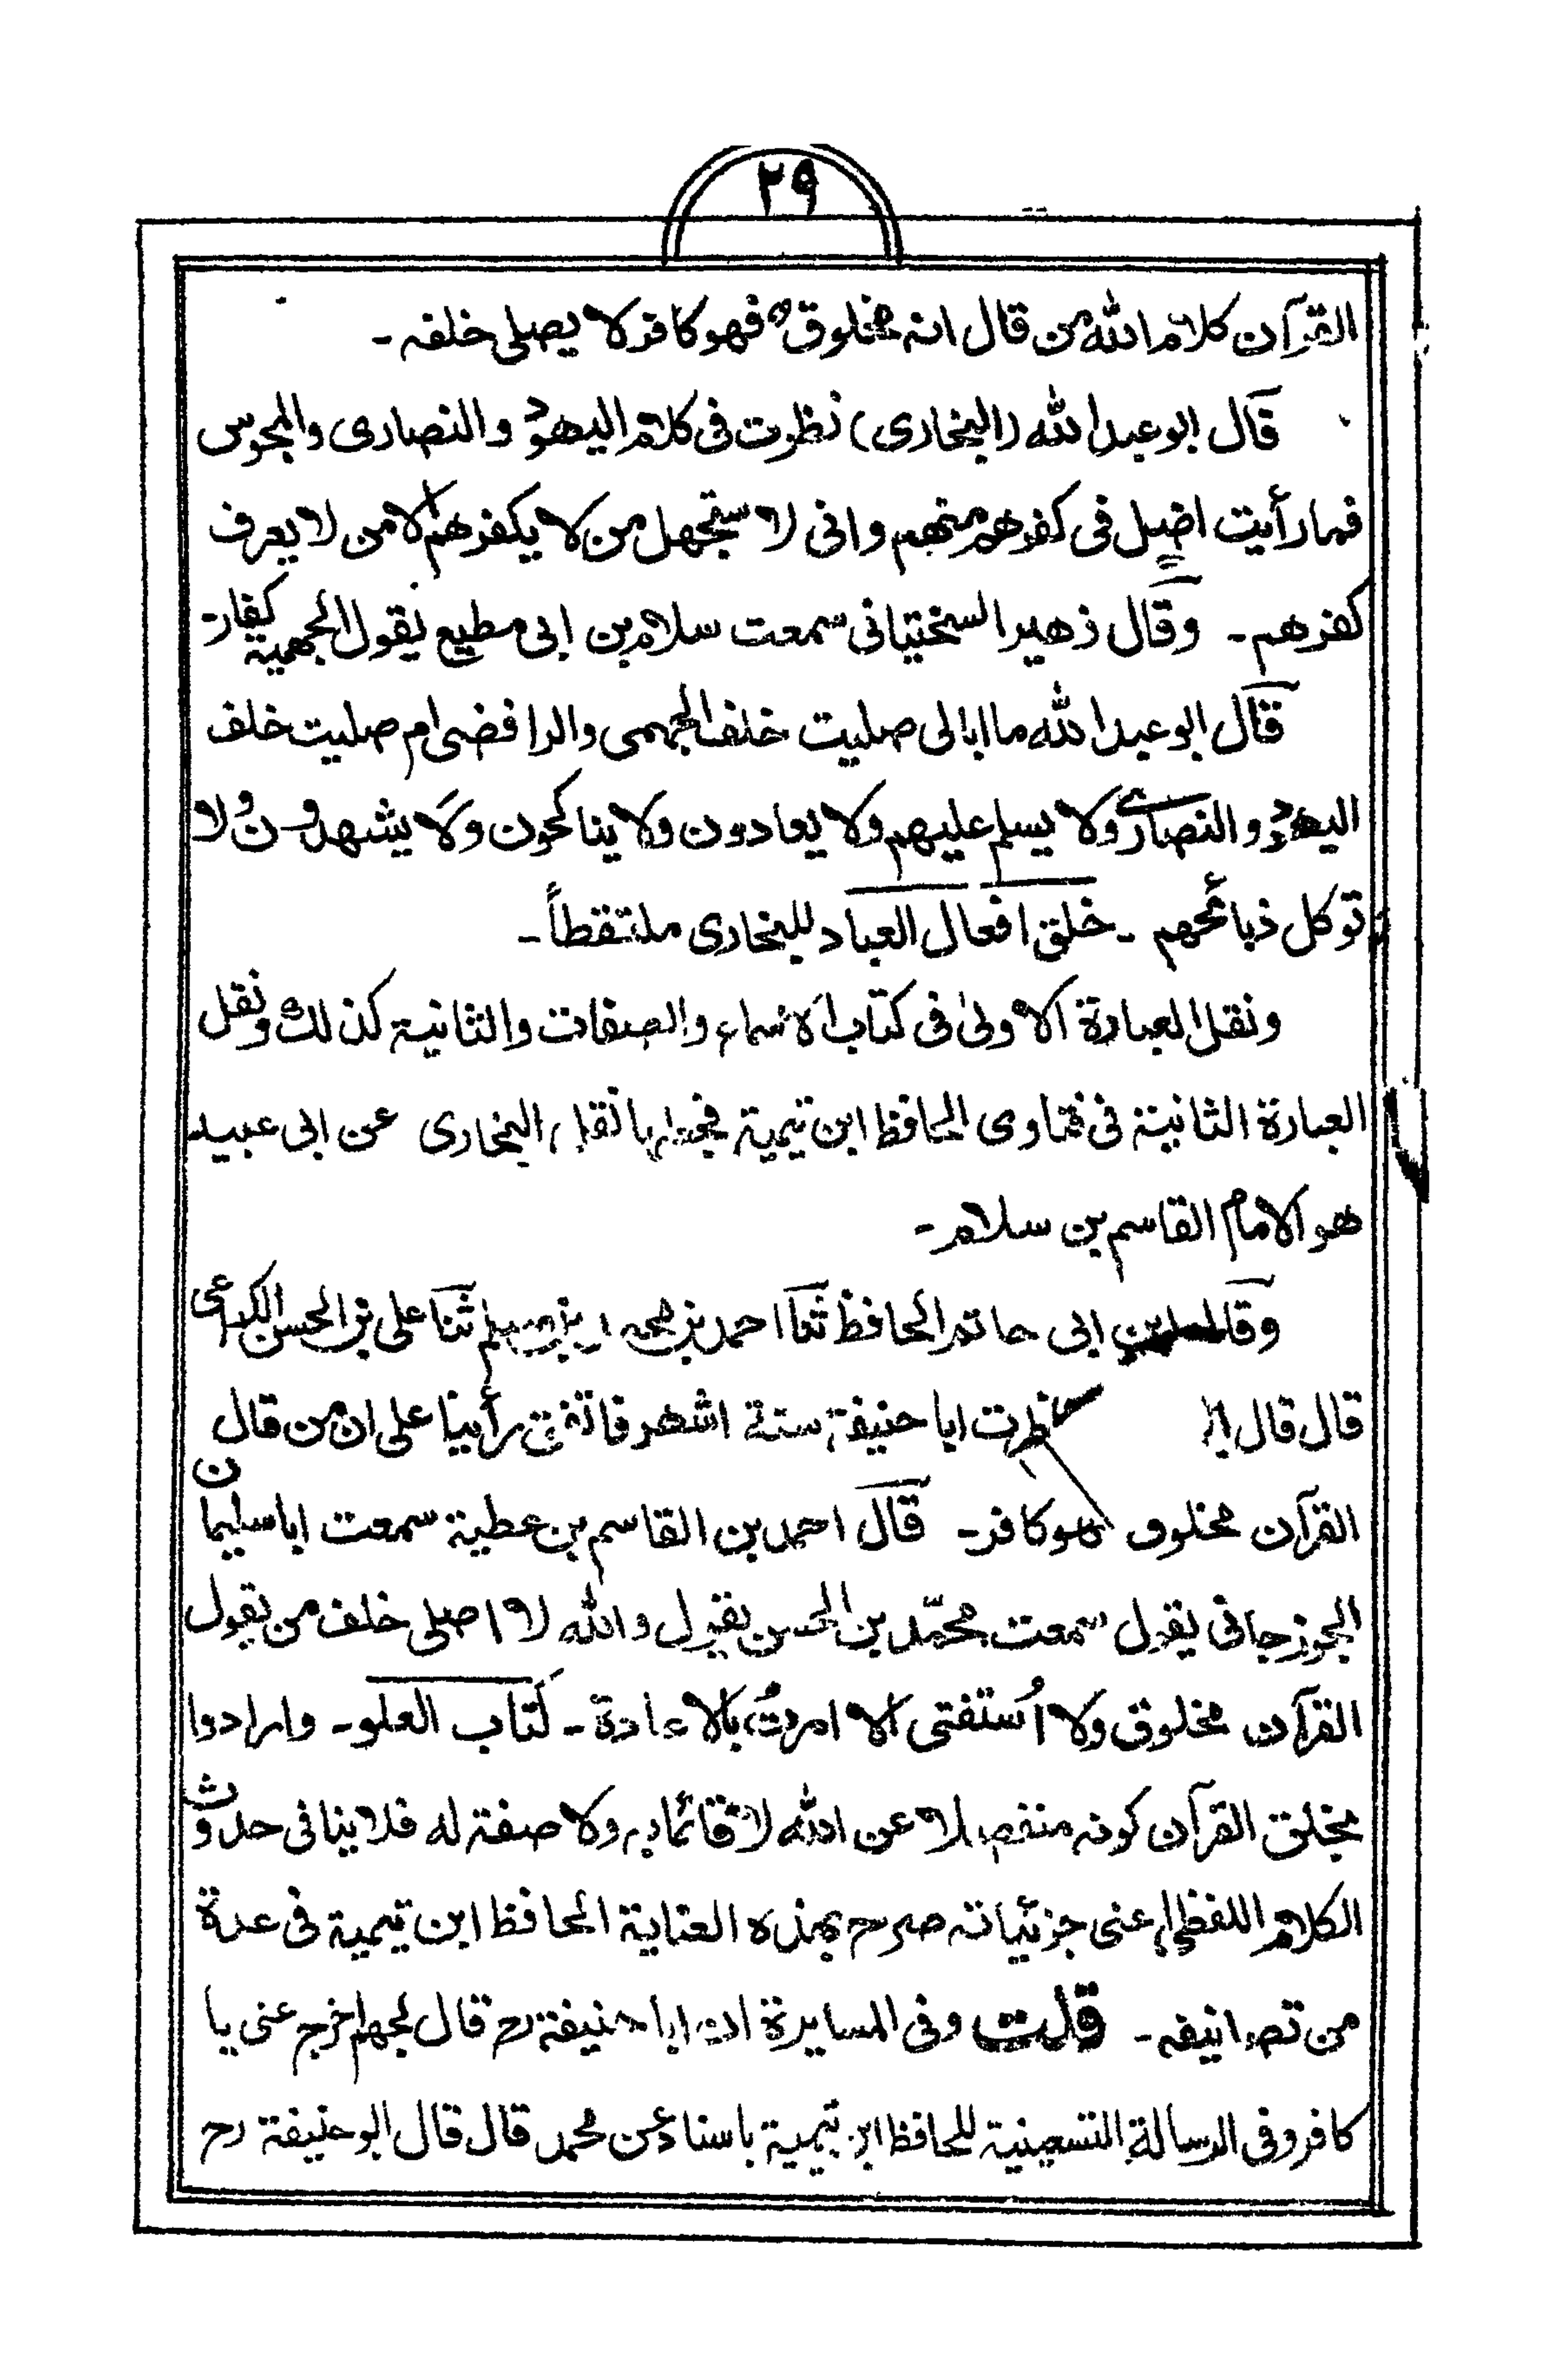 ٢٩
القرآن كلام الله من قال انه مخلوق فهو كافر لا يصلى خلفه۔
قال ابو عبد الله (البخارى) نظرت فى كلام اليهود والنصارى والمجوس
فما رأيت اضل فى كفرهم منهم وانى لاستجهل من لا يكفرهم الا من لا يعرف
كفرهم۔ وقال زهير السختيانى سمعت سلام بن ابى مطيع يقول الجهمية كفار۔
قال ابو عبد الله ما ابالى صليت خلف الجهمى والرافضى ام صليت خلف
اليهود والنصارى ولا يسلم عليهم ولا يعادون ولا يناكحون ولا يشهدون ولا
توكل ذبائحهم۔ خلق افعال العباد للبخارى ملتقطاً۔
ونقل العبارة الاولىٰ فى كتاب الاسماء والصفات والثانية كذلك ونقل
العبارة الثانية فى فتاوى الحافظ ابن تيمية فجعلها نقل البخارى عن ابى عبيد
هو الامام القاسم بن سلام۔
وقال ابن ابى حاتم الحافظ ثنا احمد بن محمد بن مسلم ثنا على بن الحسن الكراعى
قال قال ناظرت ابا حنيفة ستة اشهر فاتفق رأينا على ان من قال
القرآن مخلوق فهو كافر۔ قال احمد بن القاسم بن عطية سمعت ابا سليمان
الجوزجانى يقول سمعت محمّد بن الحسن يقول والله لا اصلى خلف من يقول
القرآن مخلوق ولا اُستفتى الا امرتُ بالاعادة۔ كتاب العلو۔ وارادوا
بخلق القرآن كونه منفصلا عن الله لا قائما به ولا صفة له فلا ينافى حدوث
الكلام اللفظى اعنى جزئياته صرح بهذه العناية الحافظ ابن تيمية فى عدة
من تصانيفه۔ قلت وفى المسايرة ان ابا حنيفة رح قال لجهم اخرج عنى يا
كافر وفى الرسالة التسعينية للحافظ ابن تيمية باسناد عن محمد قال قال ابو حنيفة رح